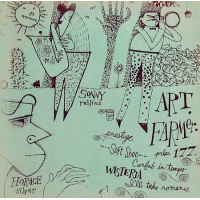 SONNY
rollins
ART
FARMER
prestige
prlp 177
Soft Shoe
Confab in tempo
WISTERIA
I'll take romance
HORACE
silver